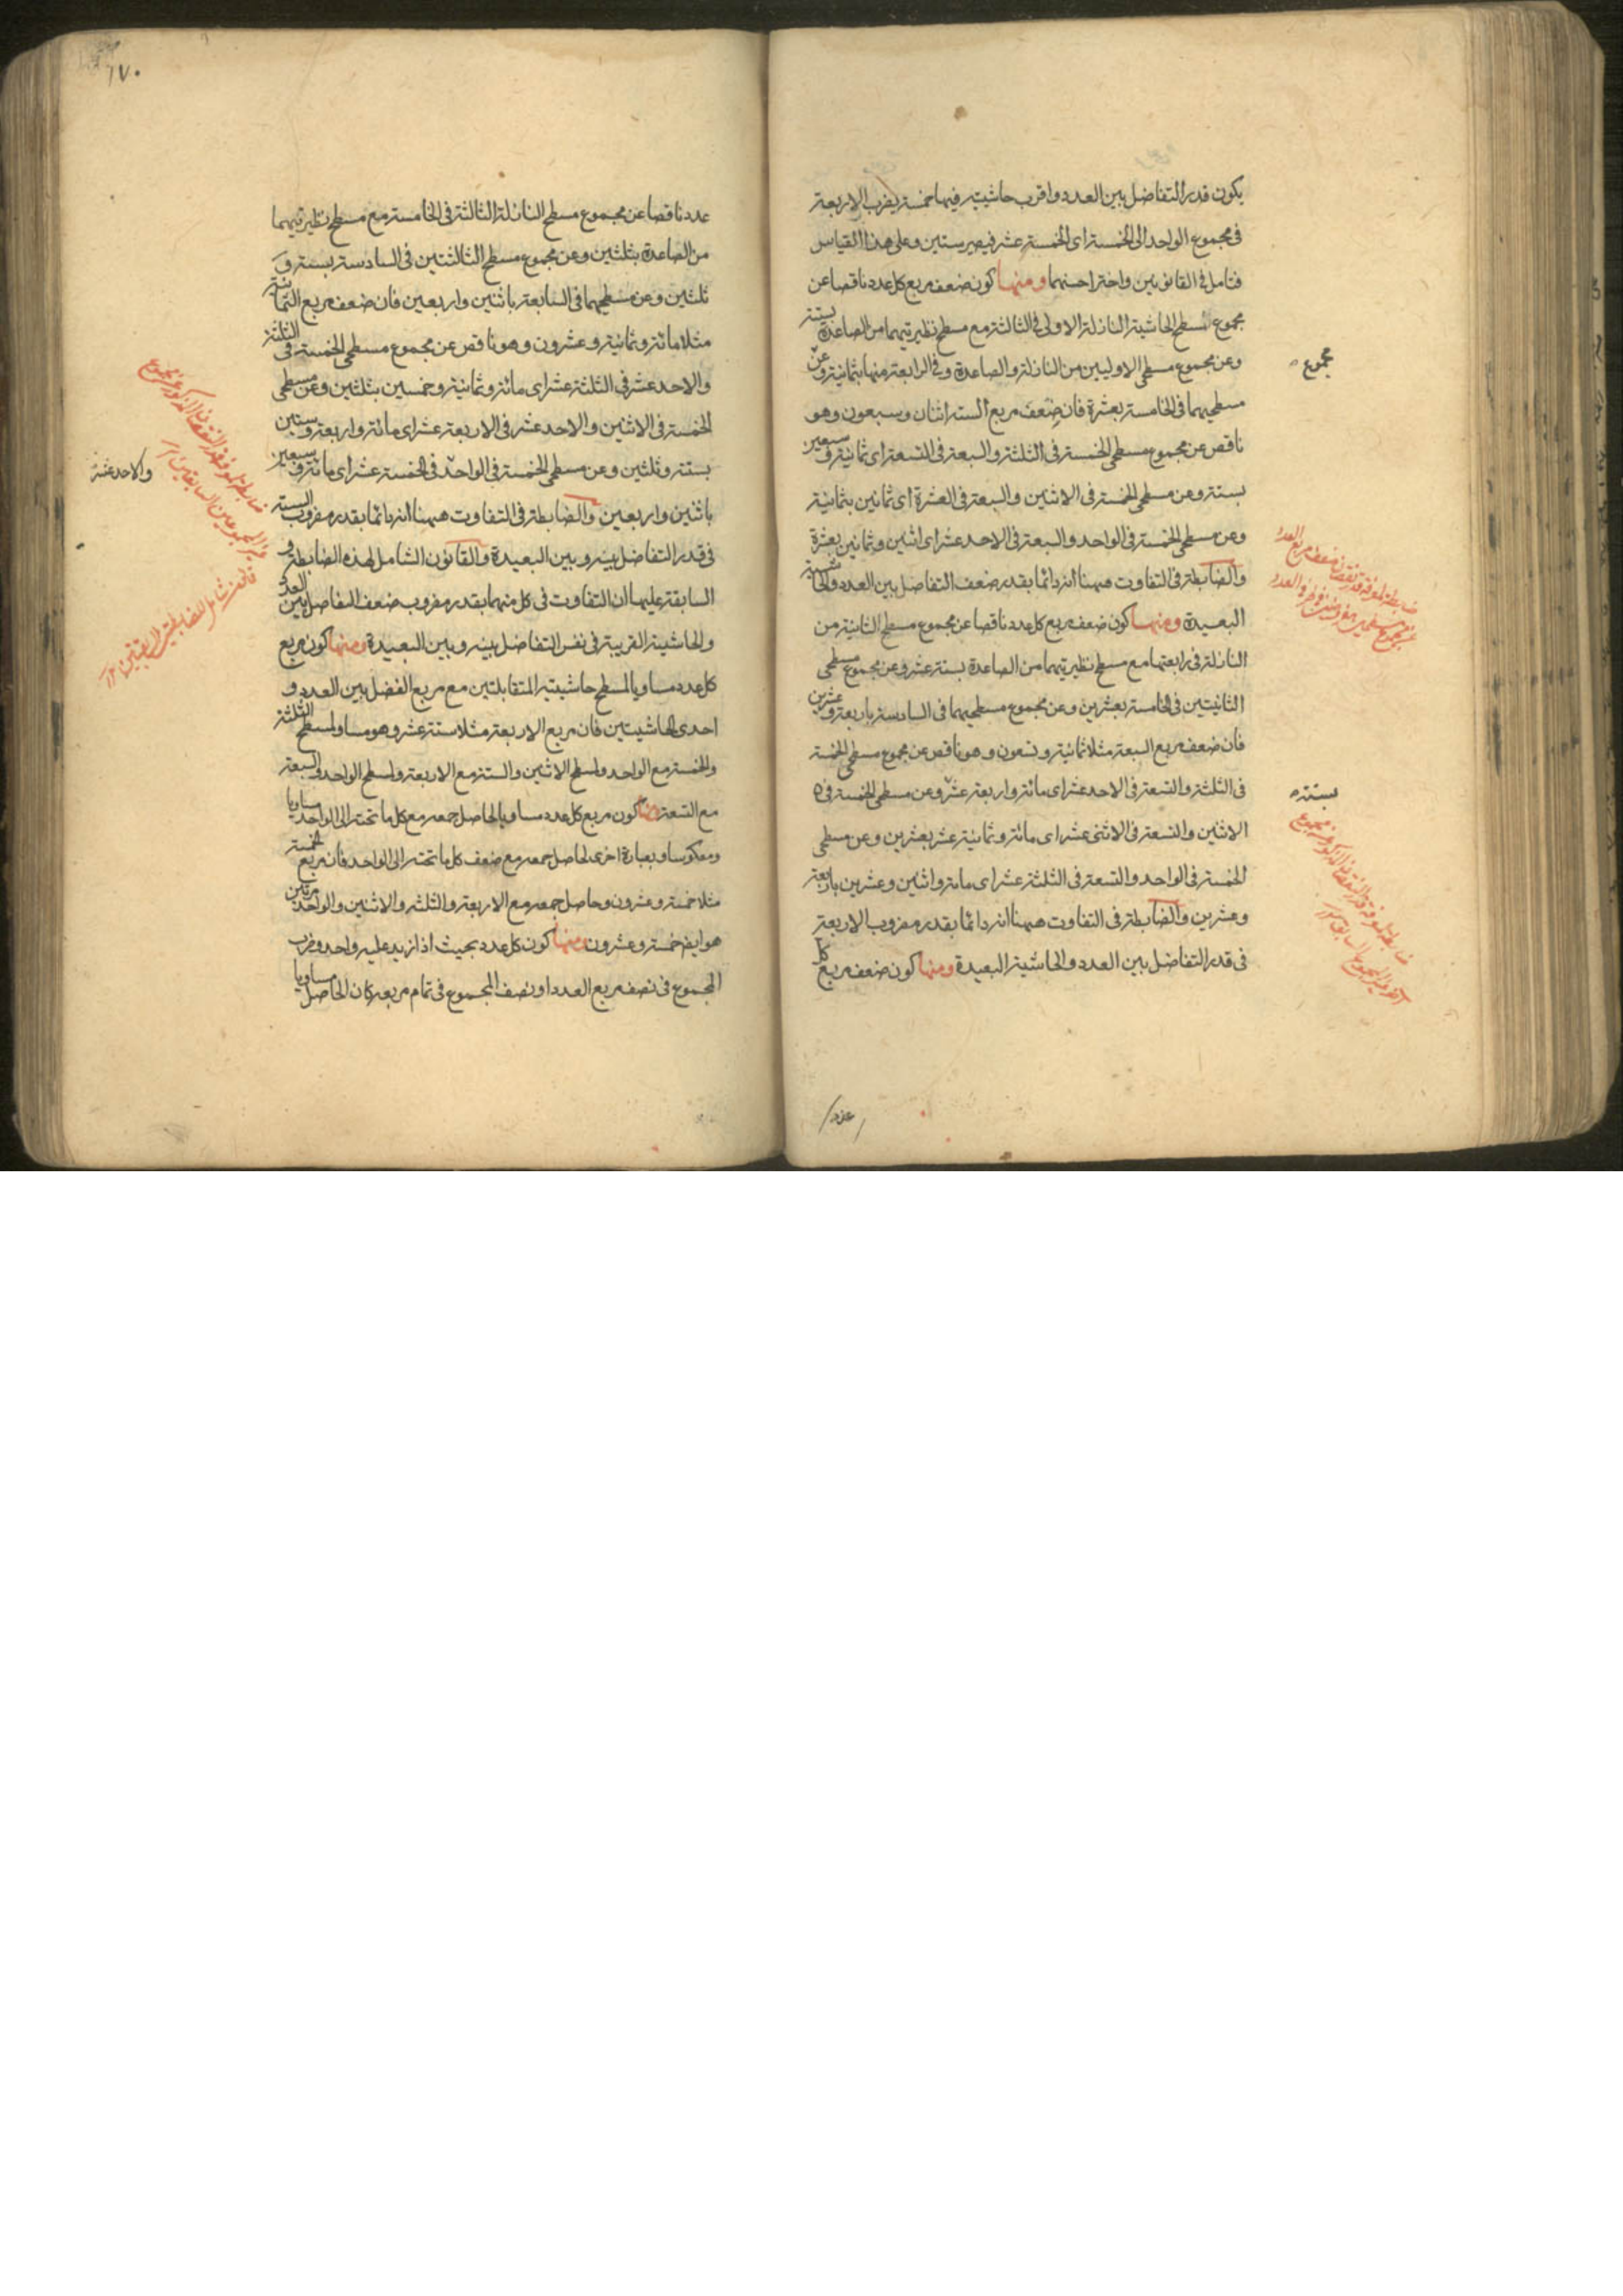 يكون قدر التفاضل بين العدد واقرب حاشيتيه فيها خمسة يضرب الاربعة
فى مجموع الواحد الى الخمسة اى الخمسة عشر فيصير ستين وعلى هذا القياس
فتامل فى القانونين واختر احسنهما ومنها كون ضعف مربع كل عدد ناقصا عن
مجموع مسطح الحاشية النازلة الاولى فى الثالثة مع مسطح نظيرتيهما من الصاعدة بستة
وعن مجموع مسطحى الاوليين من النازلة والصاعدة وفى الرابعة منها بثمانية وعن
مسطحيهما فى الخامسة بعشرة فان ضعف مربع الستة اثنان وسبعون وهو
ناقص عن مجموع مسطحى الخمسة فى الثلثة والسبعة فى التسعة اى ثمانية وسبعين
بستة وعن مسطحى الخمسة فى الاثنين والسبعة فى العشرة اى ثمانين بثمانية
وعن مسطحى الخمسة فى الواحد والسبعة فى الاحد عشر اى اثنين وثمانين بعشرة
والضابطة فى التفاوت ههنا انه دائما بقدر ضعف التفاضل بين العدد والحاشية
البعيدة ومنها كون ضعف مربع كل عدد ناقصا عن مجموع مسطح الثانية من
النازلة فى رابعتها مع مسطح نظيرتيهما من الصاعدة بستة عشر وعن مجموع مسطحى
الثانيتين فى الخامسة بعشرين وعن مجموع مسطحيهما فى السادسة باربعة وعشرين
فان ضعف مربع السبعة مثلا ثمانية وتسعون وهو ناقص عن مجموع مسطحى الخمسة
فى الثلثة والتسعة فى الاحد عشر اى مائة واربعة عشر وعن مسطحى الخمسة فى
الاثنين والتسعة فى الاثنى عشر اى مائة وثمانية عشر بعشرين وعن مسطحى
الخمسة فى الواحد والتسعة فى الثلثة عشر اى مائة واثنين وعشرين باربعة
وعشرين والضابطة فى التفاوت ههنا انه دائما بقدر مضروب الاربعة
فى قدر التفاضل بين العدد والحاشية البعيدة ومنها كون ضعف مربع كل
عدد
مجموع
بستة
١٧٠
عدد ناقصا عن مجموع مسطح النازلة الثالثة فى الخامسة مع مسطح نظيرتيهما
من الصاعدة بثلثين وعن مجموع مسطح الثالثتين فى السادسة بستة و
ثلثين وعن مسطحيهما فى السابعة باثنين واربعين فان ضعف مربع الثمانية
مثلا مائة وثمانية وعشرون وهو ناقص عن مجموع مسطحى الخمسة فى الثلثة
والاحد عشر فى الثلثة عشر اى مائة وثمانية وخمسين بثلثين وعن مسطحى
الخمسة فى الاثنين والاحد عشر فى الاربعة عشر اى مائة واربعة وستين
بستة وثلثين وعن مسطحى الخمسة فى الواحد فى الخمسة عشر اى مائة وسبعين
باثنين واربعين والضابطة فى التفاوت ههنا انه دائما بقدر مضروب الستة
فى قدر التفاضل بينه وبين البعيدة والقانون الشامل لهذه الضابطة و
السابقة عليها ان التفاوت فى كل منهما بقدر مضروب ضعف التفاضل بين العدد
والحاشية القريبة فى نفس التفاضل بينه وبين البعيدة ومنها كون مربع
كل عدد مساويا لمسطح حاشيتيه المتقابلتين مع مربع الفضل بين العدد و
احدى الحاشيتين فان مربع الاربعة مثلا ستة عشر وهو مساو لمسطح الثلثة
والخمسة مع الواحد ولمسطح الاثنين والستة مع الاربعة ولمسطح الواحد والسبعة
مع التسعة ومنها كون مربع كل عدد مساويا لحاصل جمعه مع كل ما تحته الى الواحد مساويا
ومعكوسا وبعبارة اخرى لحاصل جمعه مع ضعف كل ما تحته الى الواحد فان مربع الخمسة
مثلا خمسة وعشرون وحاصل جمعه مع الاربعة والثلثة والاثنين والواحد مرتين
هو ايضا خمسة وعشرون ومنها كون كل عدد بحيث اذا زيد عليه واحد وضرب
المجموع فى نصف مربع العدد او نصف المجموع فى تمام مربعه كان الحاصل مساويا
والاحد عشر